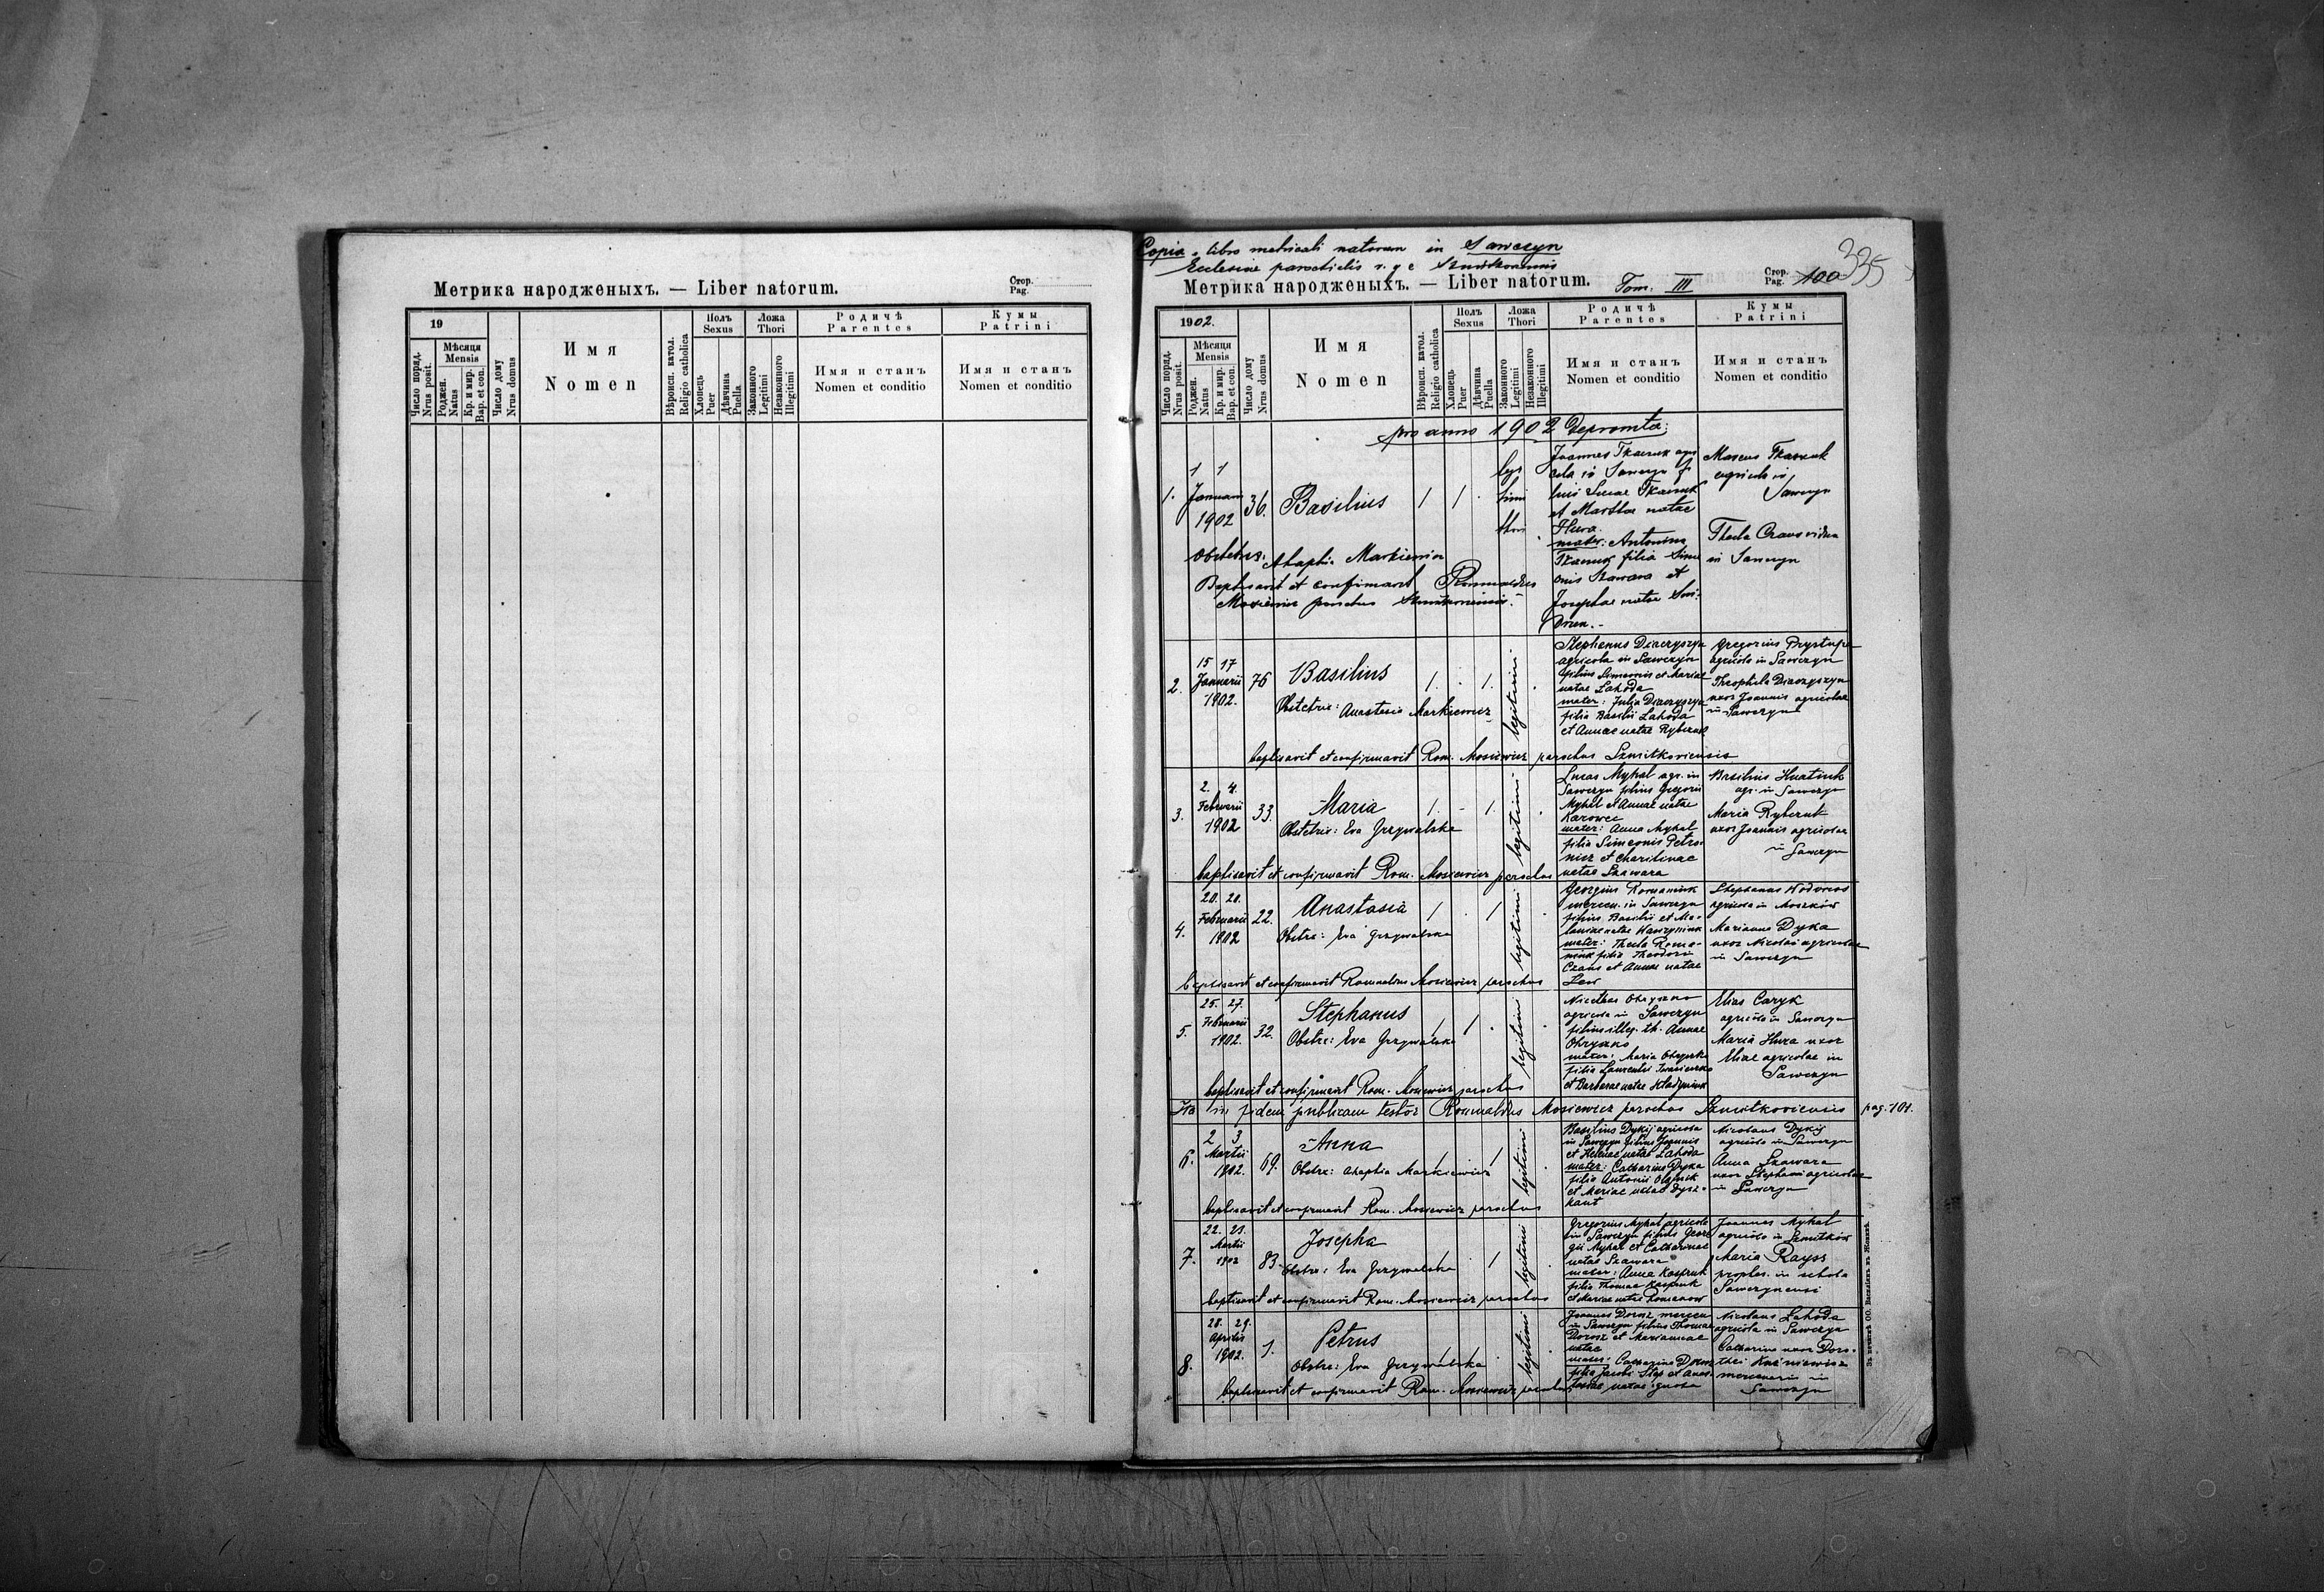 Метрика народженыхъ. — Liber natorum.
Стор.
Pag.
19
Число поряд.
Nrus posit.
Мѣсяця
Mensis
Роджен.
Natus
Кр. и мир.
Bap. et con.
Число дому
Nrus domus
Имя
Nomen
Вѣроисп. катол.
Religio catholica
Полъ
Sexus
Хлопець
Puer
Дѣвчина
Puella
Ложа
Thori
Законного
Legitimi
Незаконного
Illegitimi
Родичѣ
Parentes
Имя и станъ
Nomen et conditio
Кумы
Patrini
Имя и станъ
Nomen et conditio
Copia libro metricali natorum in Sawczyn
Ecclesiae parochialis r. g. c.
335
Метрика народженыхъ. — Liber natorum. Tom. III
Стор.
Pag. 100
1902.
Число поряд.
Nrus posit.
Мѣсяця
Mensis
Роджен.
Natus
Кр. и мир.
Bap. et con.
Число дому
Nrus domus
Имя
Nomen
Вѣроисп. катол.
Religio catholica
Полъ
Sexus
Хлопець
Puer
Дѣвчина
Puella
Ложа
Thori
Законного
Legitimi
Незаконного
Illegitimi
Родичѣ
Parentes
Имя и станъ
Nomen et conditio
Кумы
Patrini
Имя и станъ
Nomen et conditio
pro anno 1902 Depromta:
1.
1 1
Januarii
1902
36.
Basilius
1 1
legi
timi
thori
Joannes Tkaczuk agri
cola in Sawczyn fi
lius Lucae Tkaczuk
et Marthae natae
Hura.
mater: Antonina
Tkaczuk filia Sime
onis Szawara et
Josephae natae
Marcus Tkaczuk
agricola in
Sawczyn
Thecla vidua
in Sawczyn
Obstetrix: Ahaphia Markiewicz
Baptisavit et confirmavit Romualdus
Mosiewicz parochus
2.
15 17
Januarii
1902.
76
Basilius
Obstetrix: Anastasia Markiewicz
1. 1.
legitimi
Stephanus Diaczyszyn
agricola in Sawczyn
filius Simeonis et Mariae
natae Lahoda
mater: Julia Diaczyszyn
filia Basilii Lahoda
et Annae natae Rybczuk
Gregorius Prystupa
agricola in Sawczyn
Theophila Diaczyszyn
uxor Joannis agricolae
in Sawczyn
baptisavit et confirmavit Rom. Mosiewicz parochus Szmitkoviensis
3.
2. 4.
Februarii
1902
33.
Maria
Obstetrix: Eva Grzywalska
1. - 1.
legitimi
Lucas Mykal agr. in
Sawczyn filius Gregorii
Mykal et Annae natae
Karowec
mater: Anna Mykal
filia Simeonis Petro
nicz et Charitinae
natae Szawara
Basilius Hnatiuk
agr. in Sawczyn
Maria Rybczuk
uxor Joannis agricolae
in Sawczyn
baptisavit et confirmavit Rom. Mosiewicz parochus
4.
20. 20.
Februarii
1902
22.
Anastasia
Obstre: Eva Grzywalska
1 1
legitimi
Georgius Romaniuk
mercen. in Sawczyn
filius Basilii et Me-
laniae natae Hawryniuk
mater: Thecla Roma-
niuk filia Theodori
Czaus et Annae natae
Lew
Stephanus
agricola in Moszków
Marianna Dyka
uxor Nicolai agricolae
in Sawczyn
baptisavit et confirmavit Romualdus Mosiewicz parochus
5.
25. 27.
Februarii
1902.
32.
Stephanus
Obstre: Eva Grzywalska
1 1
legitimi
Nicolaus Ohryzko
agricola in Sawczyn
filius illeg. th. Annae
Ohryzko
mater: Maria Ohryzko
filia Laurentii
et Barbarae natae
Elias Caryk
agricola in Sawczyn
Maria Hura uxor
Eliae agricolae in
Sawczyn
baptisavit et confirmavit Rom. Mosiewicz parochus
Ita in fidem publicam testor Romualdus Mosiewicz parochus Szmitkoviensis
pag. 101.
6.
2 3
Martii
1902.
69.
Anna
Obstre: Ahaphia Markiewicz
1 1
legitimi
Basilius Dykij agricola
in Sawczyn filius Joannis
et Helenae natae Lahoda
mater: Catharina Dyka
filia Antonii
et Mariae natae Dysz-
kant
Nicolaus Dykij
agricola in Sawczyn
Anna Szawara
uxor Stephani agricolae
in Sawczyn
baptisavit et confirmavit Rom. Mosiewicz parochus
7.
22. 23.
Martii
1902
83.
Josepha
Obstre: Eva Grzywalska
1 1
legitimi
Gregorius Mykal agricola
in Sawczyn filius Geor
gii Mykal et Catharinae
natae Szawara
mater: Anna Kaspruk
filia Thomae Kaspruk
et Mariae natae Romanow
Joannes Mykal
agricola in Szmitków
Maria Rayss
in schola
Sawczynensi
baptisavit et confirmavit Rom. Mosiewicz parochus
8.
28. 29.
Aprilis
1902.
1.
Petrus
Obstre: Eva Grzywalska
1 1
legitimi
Joannes Dorosz mercen
in Sawczyn filius Thomae
Dorosz et Mariannae
natae
mater: Catharina Dorosz
filia Jacobi et Anas
tasiae natae
Nicolaus Lahoda
agricola in Sawczyn
Catharina uxor Doro-
thei Kuśniewicz
mercenarii in
Sawczyn
baptisavit et confirmavit Rom. Mosiewicz parochus
Зъ печатнѣ ОО. Василіянъ въ Жовквѣ.